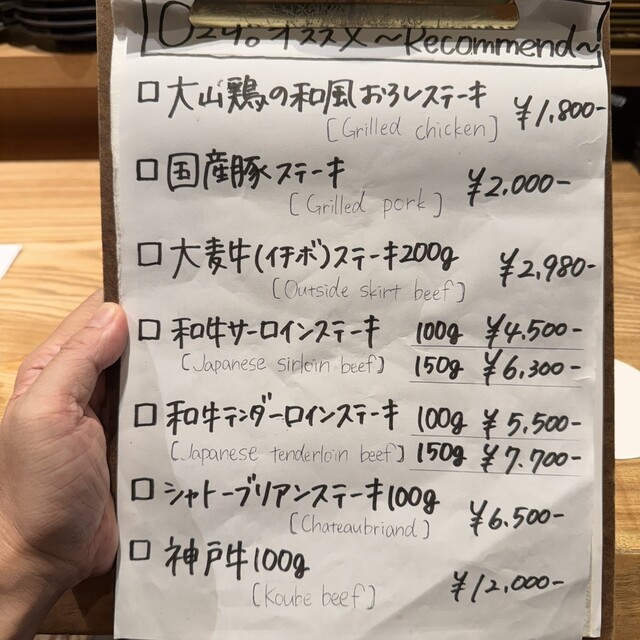 オススメ～Recommend～
□ 大山鶏の和風おろしステーキ ¥1,800-
[Grilled chicken]
□ 国産豚ステーキ ¥2,000-
[Grilled pork]
□ 大麦牛(イチボ)ステーキ200g ¥2,980-
[Outside skirt beef]
□ 和牛サーロインステーキ 100g ¥4,500-
[Japanese sirloin beef] 150g ¥6,300-
□ 和牛テンダーロインステーキ 100g ¥5,500-
[Japanese tenderloin beef] 150g ¥7,700-
□ シャトーブリアンステーキ100g ¥6,500-
[Chateaubriand]
□ 神戸牛100g ¥12,000-
[Koube beef]